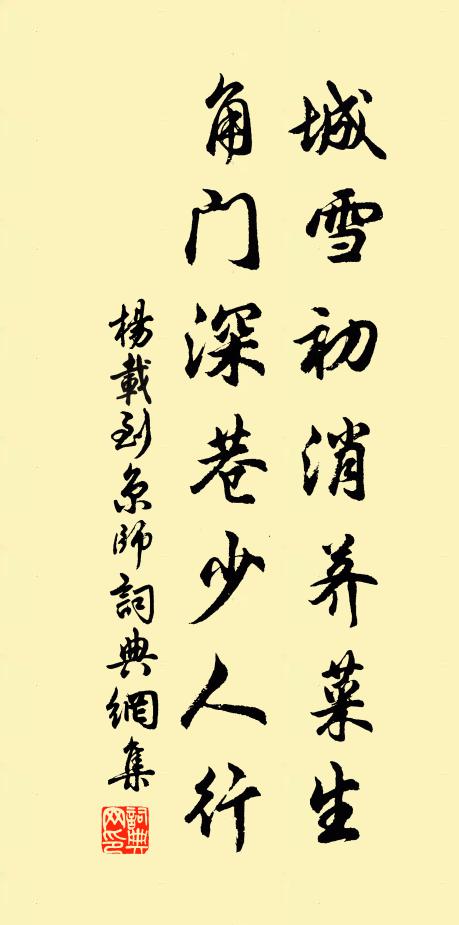 城雪初消荠菜生
角門深巷少人行
楊載到京師詞典網集
詞典网印